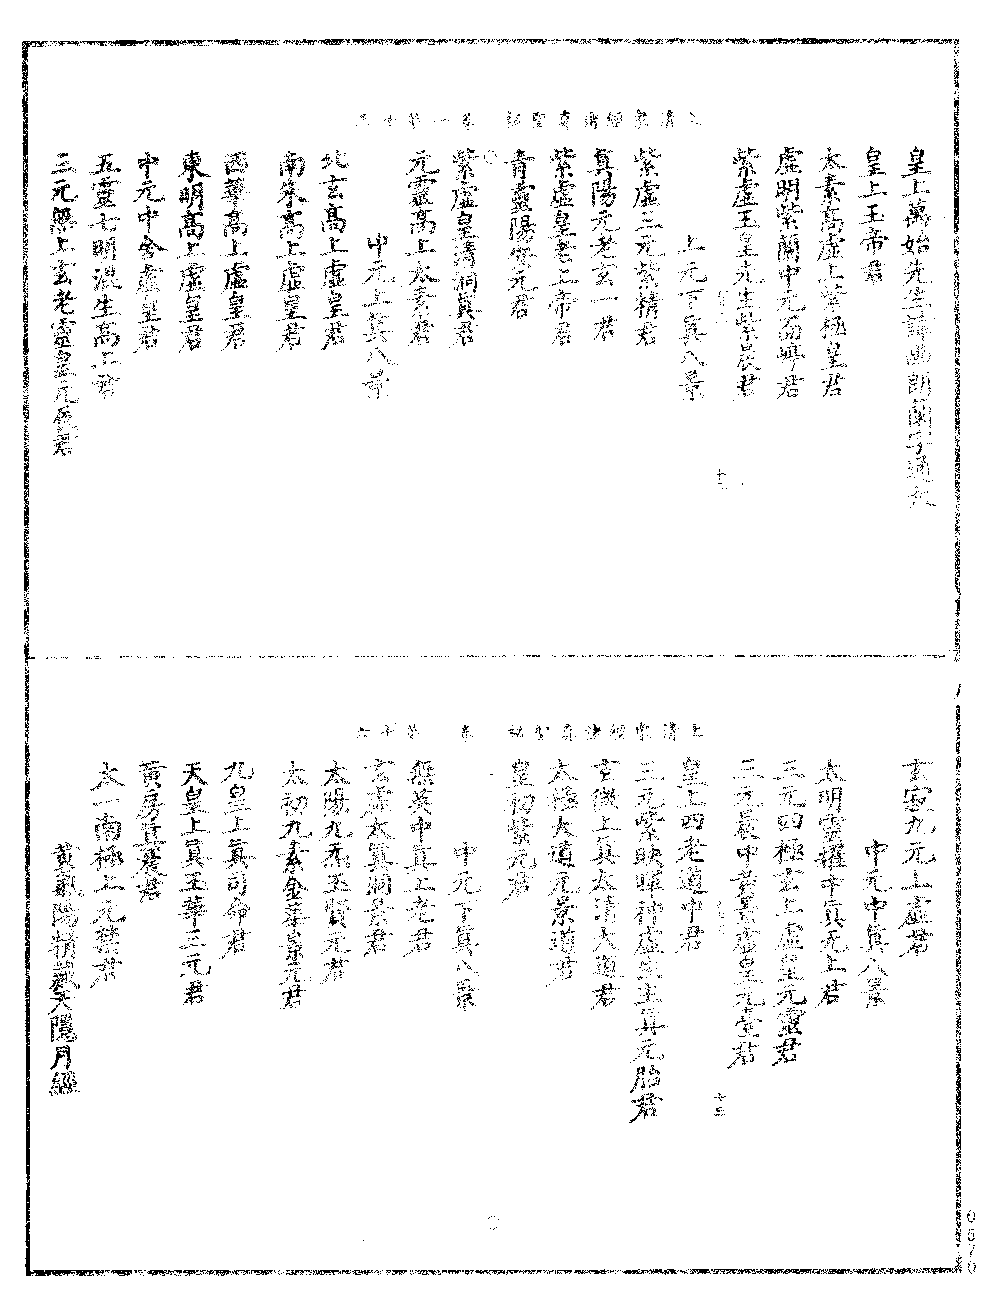 上清衆經諸眞聖祕
皇上萬始先生諱幽朗蘭字通
皇上玉帝君
太素高虛上紫極皇君
虛明紫蘭中元君
紫虛玉皇先生紫晨君
上元下眞八景
紫虛三元紫精君
眞陽元老玄一君
紫虛皇老上帝君
青靈陽安元君
紫虛皇清洞眞君
元靈高上太素君
中元上眞八景
北玄高上虛皇君
南朱高上虛皇君
西華高上虛皇君
東明高上虛皇君
中元中舍虛皇君
五靈七明混生高上君
三元無上玄老靈皇元晨君
上清衆經諸眞聖祕
玄寂九元上虛君
中元中眞八景
太明靈耀中眞无上君
三元四極玄上虛皇元靈君
三元晨中黃景虛皇元臺君
十三
皇上四老道中君
三元紫映暉神虛生主眞元胎君
玄微上眞太清大道君
太極大道元景道君
皇初紫元君
中元下眞八景
無英中眞上老君
玄虛太眞洞景君
太陽九炁玉賢元君
太初九素金華景元君
九皇上眞司命君
天皇上眞玉華三元君
黃房眞晨君
太一南極上元禁君
黃氣陽精藏天隱月經
0670